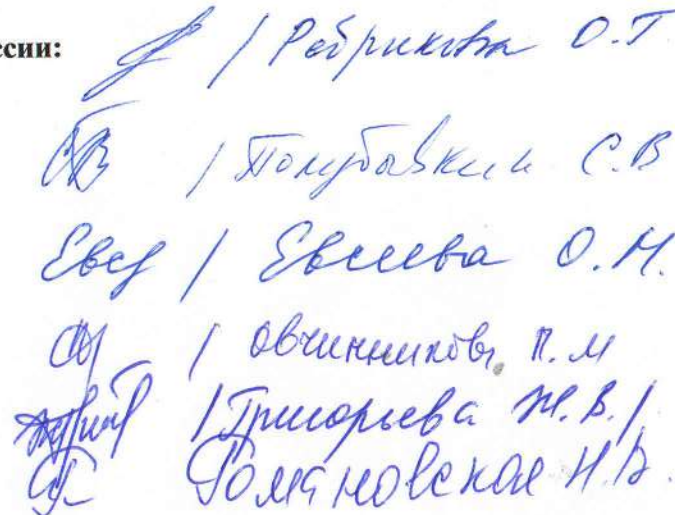 ссии:
/ Ребрикова О.Г
/ Голубовский С.В
/ Евсеева О.Н.
/ Овчинникова П.М
/ Григорьева Ж.В. /
Романовская Н.В.